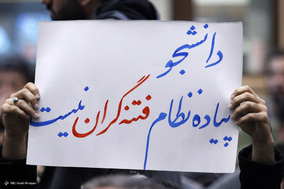 دانشجو
پیاده نظام فتنه گران نیست